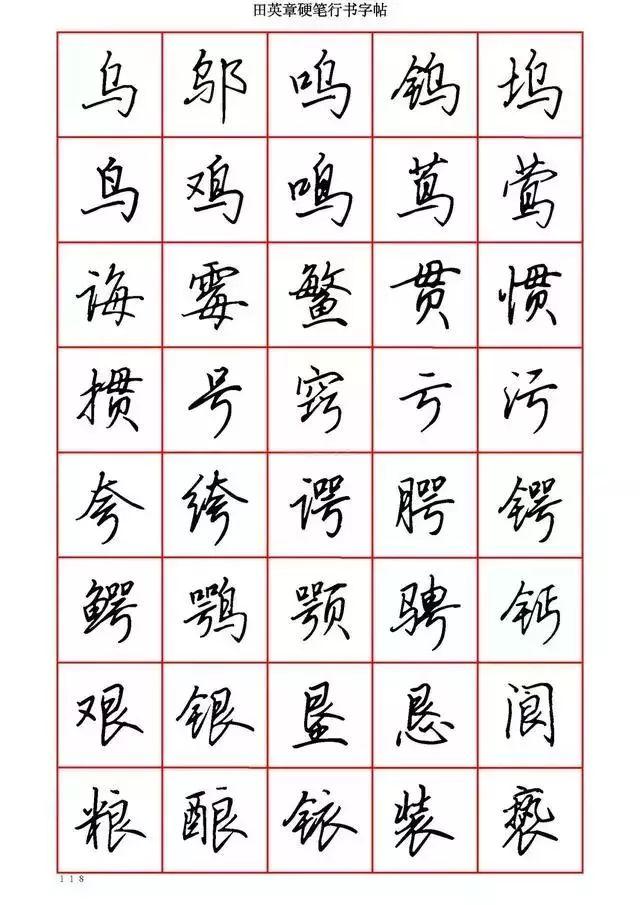 田英章硬笔行书字帖
乌 邬 呜 钨 坞
鸟 鸡 鸣 茑 莺
诲 霉 鳘 贯 惯
掼 号 窍 亏 污
夸 绔 谔 腭 锷
鳄 鹗 颚 骋 钙
艰 银 垦 恳 阆
粮 酿 铱 装 亵
118